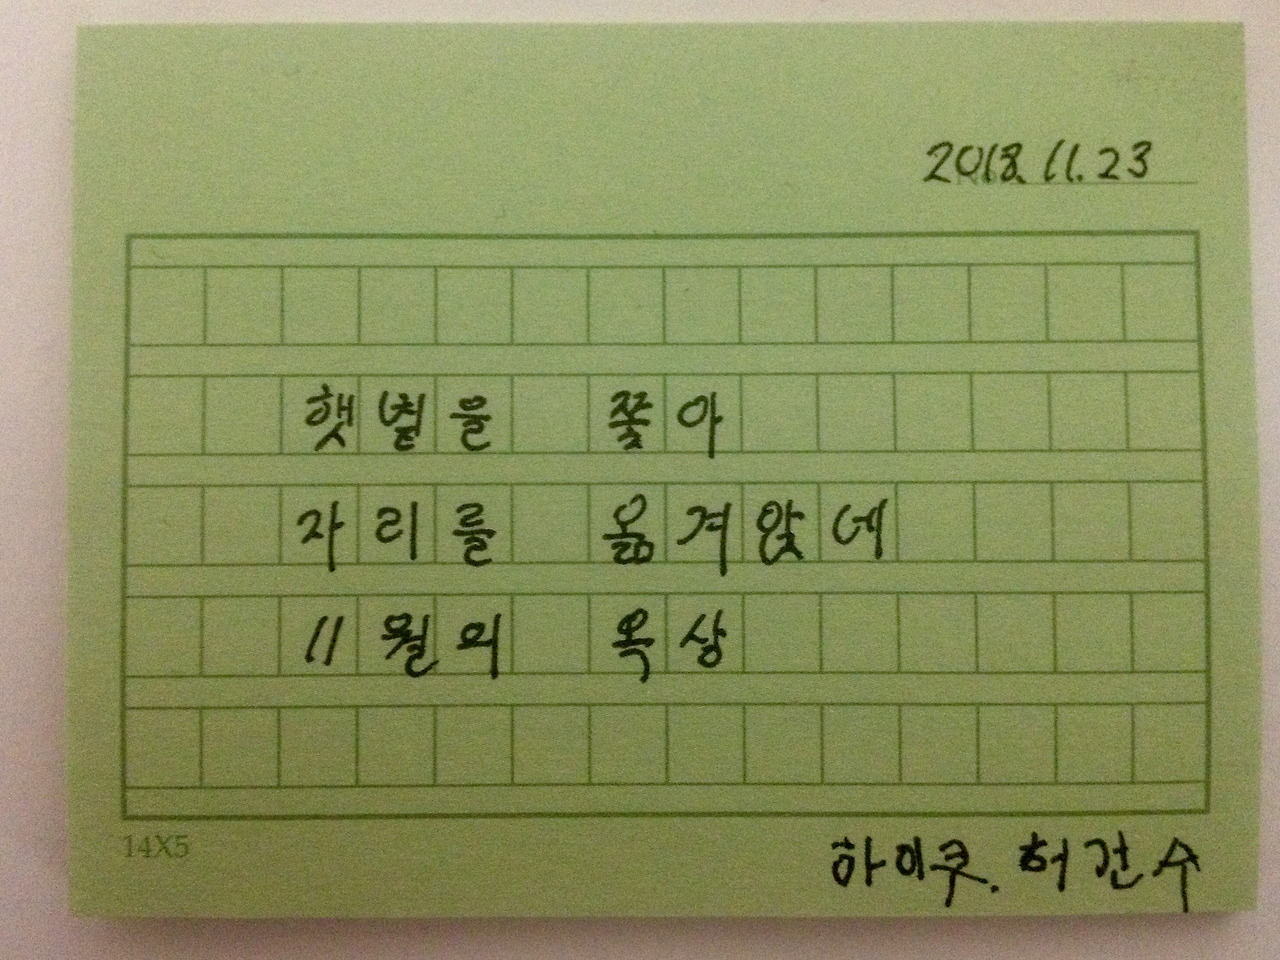 2018.11.23
햇볕을 쫓아
자리를 옮겨앉네
11월의 옥상
14X5
하이쿠. 허건수